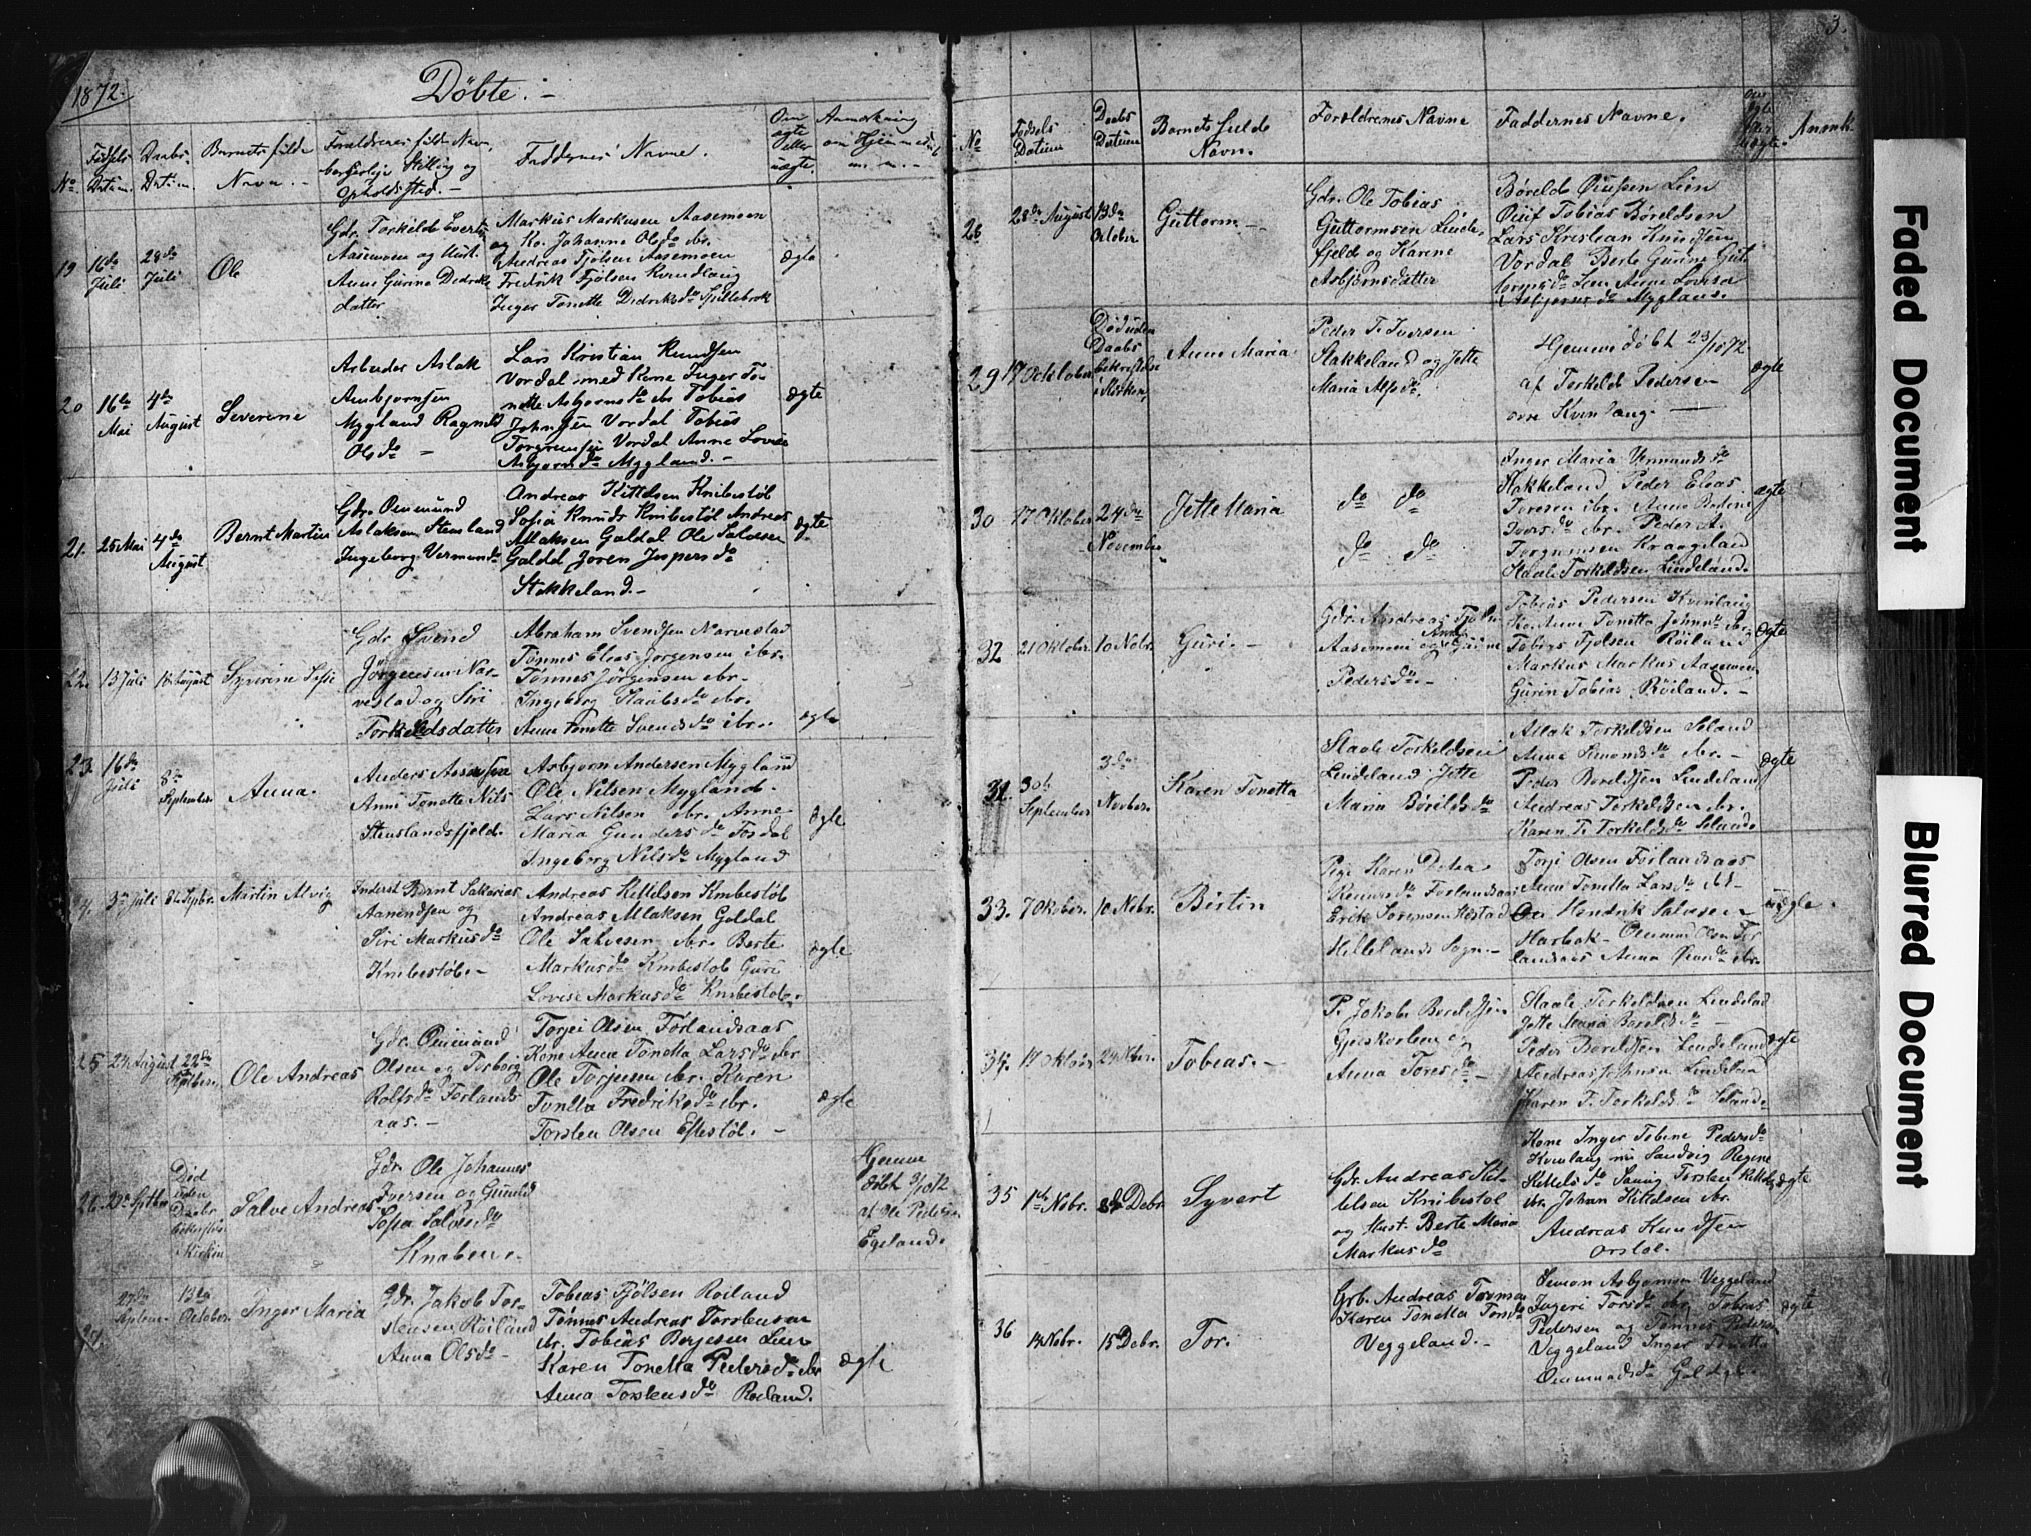 1872.
Døbte. -
No.
Fødsels Datum.
Daabs- Datum.
Barnets fulde Navn. -
Forældrenes fulde Navn, borgerlige Stilling og Opholdssted. -
Faddernes Navne.
Om ægte eller uægte.
Anmærkning om Hjemmedaab
19
16de Juli
28de Juli
Ole
Gdr. Torkild
Aasemoen og Hust.
Anne Gurine Dedriks
datter
Markus Markusen Aasemoen
og Ko. Johanne Olsdr ibr.
Andreas Fjølsen Aasemoen
Fredrik Fjølsen Kvindlaug
Inger Tonette Dedriksdr
ægte
20
16de Mai
4de August
Severine
Arbeider Aslak
Asbjørnsen
Mygland Ragnild
Olsdr -
Lars Kristian Knudsen
Vordal med Kone Inger To-
nette Asbjørnsdr Tobias
Johnsen Vordal Tobias
Torgrimsen Vordal Anne Lovise
Asbjørnsdr Mygland. -
ægte
21.
25 Mai
4de August
Bernt Martin
Gdr. Ommund
Aslaksen Stensland
Ingeborg Vermundsdr
Andreas Kittelsen Knibestøl
Sofia Knuds Knibestøl Andreas
Atlaksen Galdal Ole Salvesen
Galdal Joren Jespersdr
Stakkeland. -
ægte
22.
13 Juli
18 August
Syverine Sofie
Gdr Svend
Jørgensen Nar-
vestad og Siri
Torkeldsdatter
Abraham Svendsen Narvestad
Tønnes Elias Jørgensen ibr.
Tønnes Jørgensen ibr. -
Ingeborg Staalesdr ibr.
Anne Tonette Svendsdr ibr.
ægte
23.
16de Juli
8de September
Anna.
Anders
Anne Tonette Nils
Stenslandsfjeld.
Asbjørn Andersen Mygland
Ole Nilsen Mygland.
Lars Nilsen ibr. Anne
Maria Gundersdr Fosdal
Ingeborg Nilsdr Mygland
ægte
24.
3die Juli
8de Septbr.
Martin Alvig
Inderst Bernt Sakarias
Aanendsen og
Siri Markusdr
Knibestøl. -
Andreas Kittelsen Knibestøl
Andreas Atlaksen Galdal
Ole Salvesen ibr. Berte
Markusdr Knibestøl Guri
Lovise Markusdr Knibestøl.
ægte
25
24 August
22de Septbr.
Ole Andreas
Gdr. Ommund
Olsen og Torborg
Rolfsdr Førlands-
aas. -
Torjei Olsen Førlandsaas
Kone Anna Tonetta Larsdr ibr
Ole Torjusen ibr. Karen
Tonetta Fredriksdr ibr.
Torsten Olsen Eftestøl. -
ægte
26.
22de Septbr
Død uden Daabs bekræftelse i Kirken
Salve Andreas
Gdr. Ole Johannes
Iversen og Gunild
Sofia Salvesdr
Knaben. -
Hjemme
døbt
af Ole Pedersen
Egeland.
27de Septem.
13de October.
Inger Maria
Gdr. Jakob Tor-
stensen Røiland
Anna Olsdr -
Tobias Fjølsen Røiland
Tønnes Andreas Torstensen
ibr. Tobias Børjesen Lien
Karen Tonetta Pedersdr ibr
Anna Torstensdr Røiland.
ægte
3.
No
Fødsels Datum
Daabs Datum
Barnets fulde Navn.
Forældrenes Navne
Faddernes Navne.
Anmk.
28
28de August
13de October
Guttorm -
Gdr. Ole Tobias
Guttormsen Linde-
fjeld og Karene
Asbjørnsdatter
Børeld Lien
Tobias Børeldsen
Lars Kristian Knudsen
Vordal Berte Gurine Gut
tormsdr Lien Anne Lovisa
Asbjørnsdr Mygland.
29
17 October
Død uden Daabs bekræftelse i Kirken
Anne Maria
Peder T. Iversen
Stakkeland og Jette
Maria Alfsdr.
Hjemme døbt 23/10 72
af Torkild Pedersen
øvre Kvinlaug. -
ægte
30
17 Oktober
24de November
Jette Maria
do do
do do
Inger Maria Vermundsdr
Stakkeland Peder Elias
Toresen ibr. Anne Bertine
Iversdr ibr. Peder A.
Torgrimsen Kraageland
Staale Torkeldsen Lindeland.
ægte
32
21 Oktober.
10 Nobr.
Guri. -
Gdr. Andreas Fjølsen
Aasemoen og Anne Gurine
Pedersdr. -
Tobias Pedersen Kvinlaug
Ko. Anne Tonetta Johnsdr ibr.
Tobias Fjølsen Røiland
Markus Markus Aasemoen
Gurin Tobias Røiland. -
ægte
31.
30te September
3die Novber.
Karen Tonetta
Staale Torkeldsen
Lindeland Jette
Maria Børildsdr
Atlak Torkeldsen Seland
Anna Simonsdr ibr. -
Peder Boreldsen Lindeland
Andreas Torkeldsen ibr.
Karen T. Torkeldsdr Seland.
ægte
33.
7 Oktober.
10 Nobr.
Bertin
Pige Karen
Førlandsaas
Erik Sørensen Hestad
Hellelands Sogn. -
Torje Olsen Førlandsaas
Anna Tonetta Larsdr ibr.
Hendrik Salvesen
Harbak - Ommund Olsen Før
landsaas Anna ibr.
uægte.
34.
17 Oktober
24 Nober.
Tobias. -
P. Jakob Boreldsen
og
Anna Toresdr -
Staale Torkeldsen Lindeland
Jette Maria Boreldsdr -
Peder Boreldsen Lindeland
Andreas Johnsen Lindeland
Karen T. Torkeldsdr Seland.
ægte
35
1ste Nobr.
8de Debr.
Syvert
Gdr. Andreas Kit-
telsen Knibestøl
og Hust. Berte Maria
Markusdr
Kone Inger Tobine Pedersdr
Kvinlaug Regine
Kittelsdr Torsten Kittelsen
ibr. Johan Kittelsen ibr.
Andreas Knudsen
ægte
36
14 Nobr.
15 Debr.
Tor.
Grb. Andreas
Karen Tonetta Torsdr
Veggeland. -
Simon Asbjørnsen Veggeland
Ingeri Torsdr ibr. Tobias
Pedersen og Tønnes Pedersen
Veggeland Inger Tonetta
Ommundsdr
ægte
Faded Document
Blurred Document